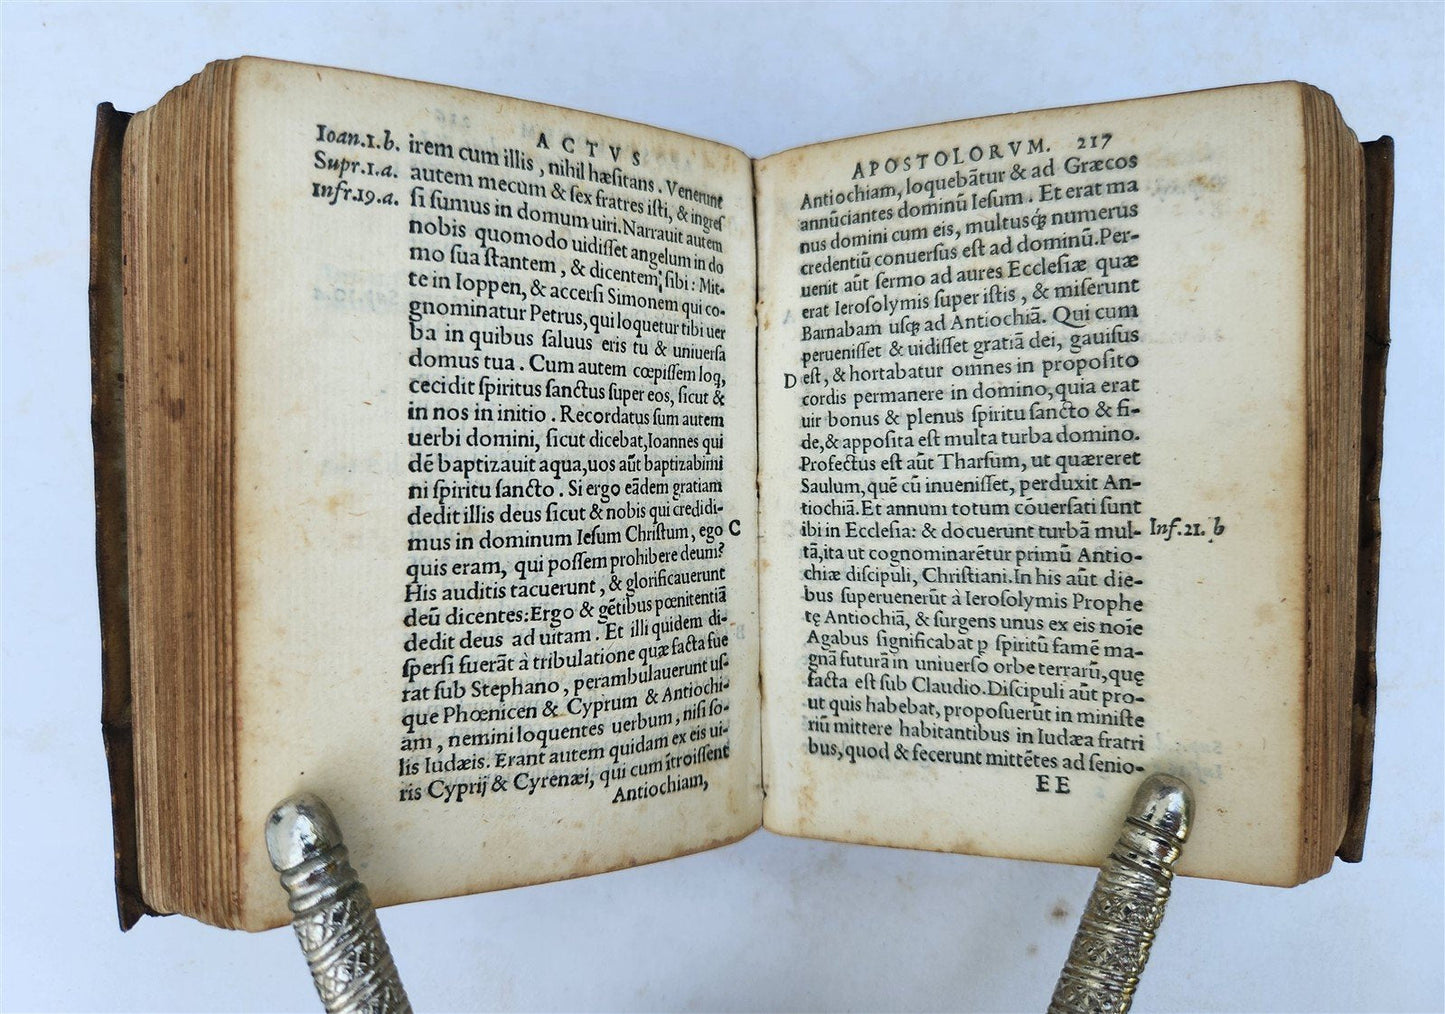 ACTVS
Ioan.1.b. irem cum illis, nihil hæſitans. Venerunt
Supr.1.a. autem mecum & ſex fratres iſti, & ingreſ
Infr.19.a. ſi ſumus in domum uiri. Narrauit autem
nobis quomodo uidiſſet angelum in do
mo ſua ſtantem, & dicentem ſibi: Mit-
te in Ioppen, & accerſi Simonem qui co-
gnominatur Petrus, qui loquetur tibi uer
ba in quibus ſaluus eris tu & uniuerſa
domus tua. Cum autem cœpiſſem loq,
cecidit ſpiritus ſanctus ſuper eos, ſicut &
in nos in initio. Recordatus ſum autem
uerbi domini, ſicut dicebat, Ioannes qui
dē baptizauit aqua, uos aūt baptizabimi
ni ſpiritu ſancto. Si ergo eādem gratiam
dedit illis deus ſicut & nobis qui credidi-
mus in dominum Ieſum Chriſtum, ego C
quis eram, qui poſſem prohibere deum?
His auditis tacuerunt, & glorificauerunt
deū dicentes: Ergo & gētibus pœnitentiā
dedit deus ad uitam. Et illi quidem di-
ſperſi fuerāt à tribulatione quæ facta fue
rat ſub Stephano, perambulauerunt uſ-
que Phœnicen & Cyprum & Antiochi-
am, nemini loquentes uerbum, niſi ſo-
lis Iudæis. Erant autem quidam ex eis ui-
ris Cyprij & Cyrenæi, qui cum ītroiſſent
Antiochiam,
APOSTOLORVM. 217
Antiochiam, loquebātur & ad Græcos
annūciantes dominū Ieſum. Et erat ma
nus domini cum eis, multusq; numerus
credentiū conuerſus eſt ad dominū. Per-
uenit aūt ſermo ad aures Eccleſiæ quæ
erat Ieroſolymis ſuper iſtis, & miſerunt
Barnabam uſq; ad Antiochiā. Qui cum
perueniſſet & uidiſſet gratiā dei, gauiſus
D eſt, & hortabatur omnes in propoſito
cordis permanere in domino, quia erat
uir bonus & plenus ſpiritu ſancto & fi-
de, & appoſita eſt multa turba domino.
Profectus eſt aūt Tharſum, ut quæreret
Saulum, quē cū inueniſſet, perduxit An-
tiochiā. Et annum totum cōuerſati ſunt
ibi in Eccleſia: & docuerunt turbā mul- Inf.21. b
tā, ita ut cognominarētur primū Antio-
chiæ diſcipuli, Chriſtiani. In his aūt die-
bus ſuperuenerūt à Ieroſolymis Prophe
tę Antiochiā, & ſurgens unus ex eis noīe
Agabus ſignificabat p ſpiritū famē ma-
gnā futurā in uniuerſo orbe terrarū, quę
facta eſt ſub Claudio. Diſcipuli aūt pro-
ut quis habebat, propoſuerūt in miniſte
riū mittere habitantibus in Iudæa fratri
bus, quod & fecerunt mittētes ad ſenio-
EE